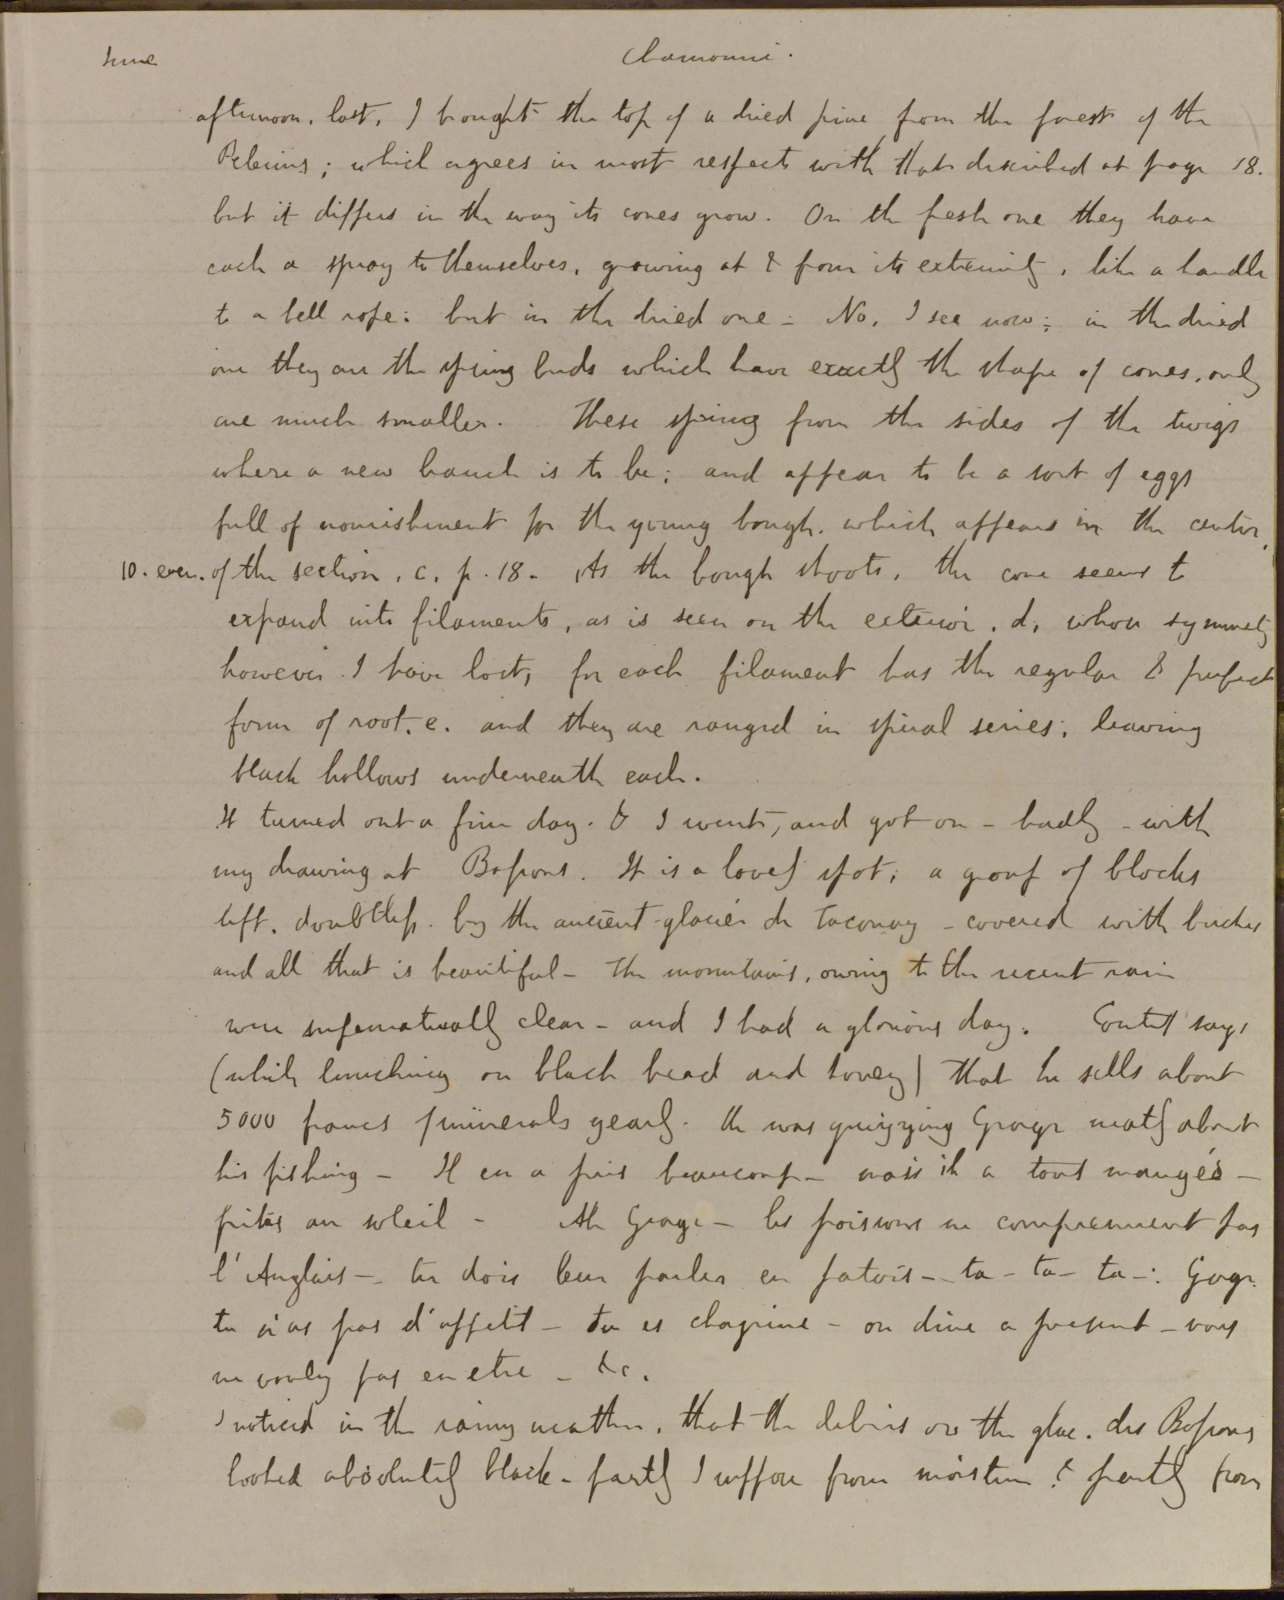 June Chamouni.
afternoon, lost. I brought the top of a dried pine from the forest of the
Pelerins; which agrees in most respects with that described at page 18.
but it differs in the way its cones grow. On the fresh one they have
each a spray to themselves, growing at & from its extremity, like a handle
to a bell rope: but in the dried one - No, I see now; in the dried
one they are the spring buds which have exactly the shape of cones, only
are much smaller. These spring from the sides of the twigs
where a new branch is to be; and appear to be a sort of eggs
full of nourishment for the young bough. which appears in the center
10. even. of the section, c. p. 18. As the bough shoots, the cone seems to
expand into filaments, as is seen on the exterior. d, whose symmetry
however I have lost, for each filament has the regular & perfect
form of root. e. and they are ranged in spiral series; leaving
black hollows underneath each.
It turned out a fine day. & I went, and got on - badly - with
my drawing at Bossons. It is a lovely spot; a group of blocks
left, doubtless. by the ancient glacier de Taconay - covered with birches
and all that is beautiful - The mountains, owing to the recent rain
were supernaturally clear - and I had a glorious day. Coutet says
(while lunching on black bread and honey) that he sells about
5000 francs minerals yearly. He was quizzing George neatly about
his fishing - Il en a pris beaucoup - mais il a tous mangés -
frites au soleil - Ah George - les poissons ne comprennent pas
l'Anglais - tu dois leur parler en patois - ta - ta - ta -: George.
tu n'as pas d'appetit - tu es chagriné - on dine a present - vous
ne voulez pas en etre - &c.
I noticed in the rainy weather, that the debris on the glac. des Bossons
looked absolutely black - partly I suppose from moisture & partly from